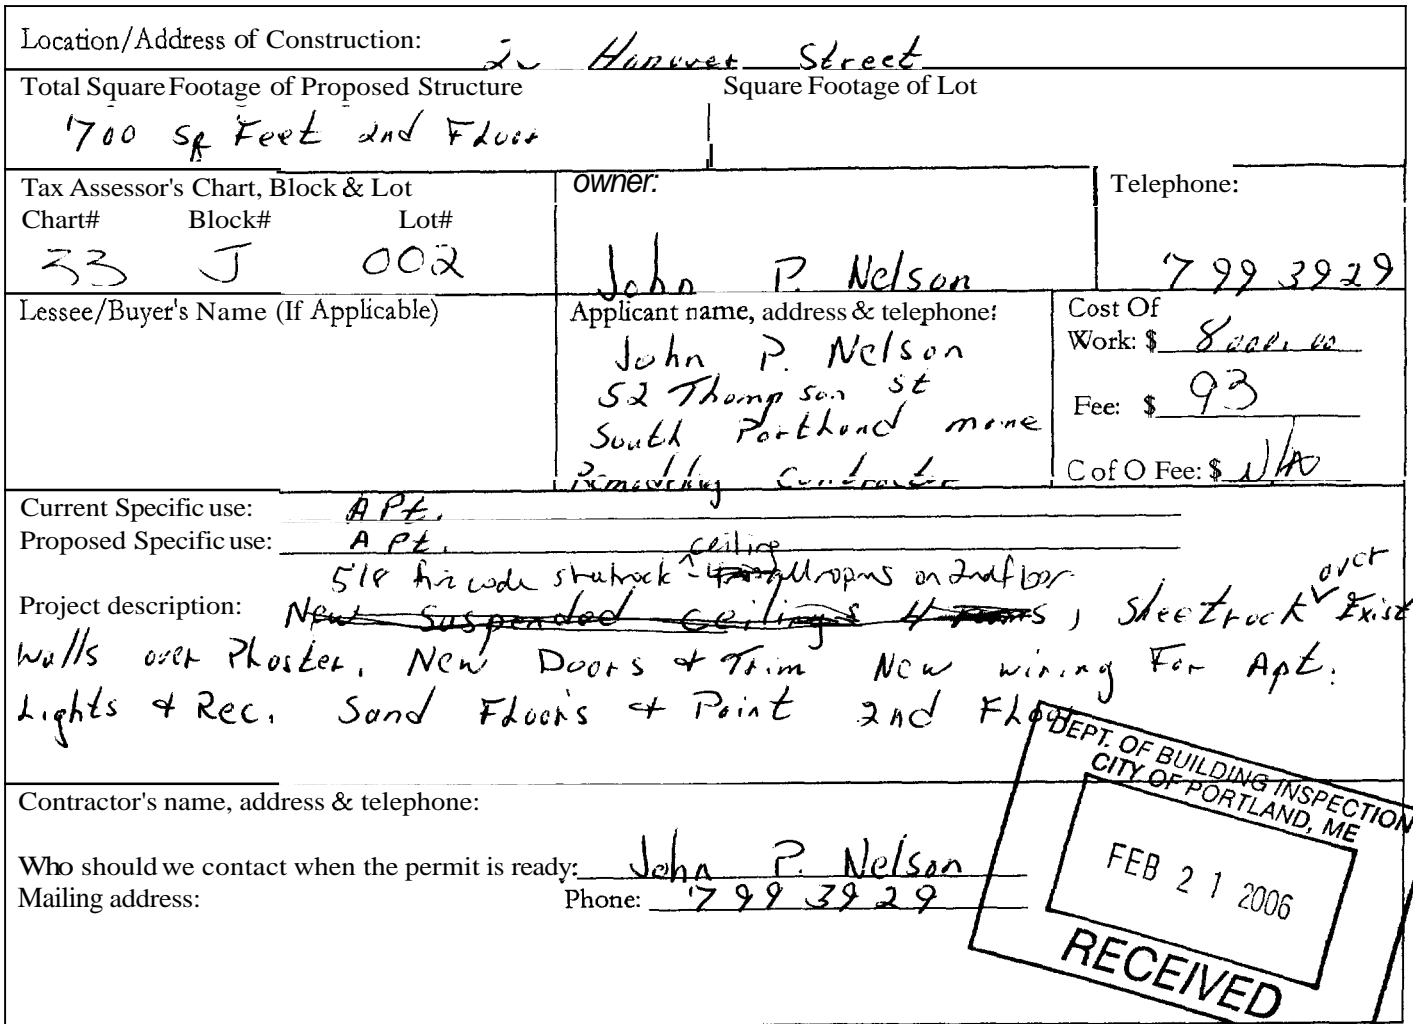 Location/Address of Construction: Hanover Street
Total Square Footage of Proposed Structure Square Footage of Lot
700 Sq Feet 2nd Floor
Tax Assessor's Chart, Block & Lot owner: Telephone:
Chart# Block# Lot#
33 J 002 John P. Nelson 799 3929
Lessee/Buyer's Name (If Applicable) Applicant name, address & telephone: Cost Of
John P. Nelson Work: $ 8000.00
52 Thompson st Fee: $ 93
South Portland
Remodeling Contractor C of O Fee: $ N/A
Current Specific use: APt.
Proposed Specific use: APt.
ceiling
5/8 fire code all rooms on 2nd floor
over
Project description: New Suspended Ceilings 4 rooms, Sheetrock Exist
Walls over Plaster. New Doors & Trim New wiring For Apt.
Lights & Rec. Sand Floors & Paint 2nd Floor
DEPT. OF BUILDING INSPECTION
CITY OF PORTLAND, ME
FEB 21 2006
RECEIVED
Contractor's name, address & telephone:
Who should we contact when the permit is ready: John P. Nelson
Mailing address: Phone: 799 3929